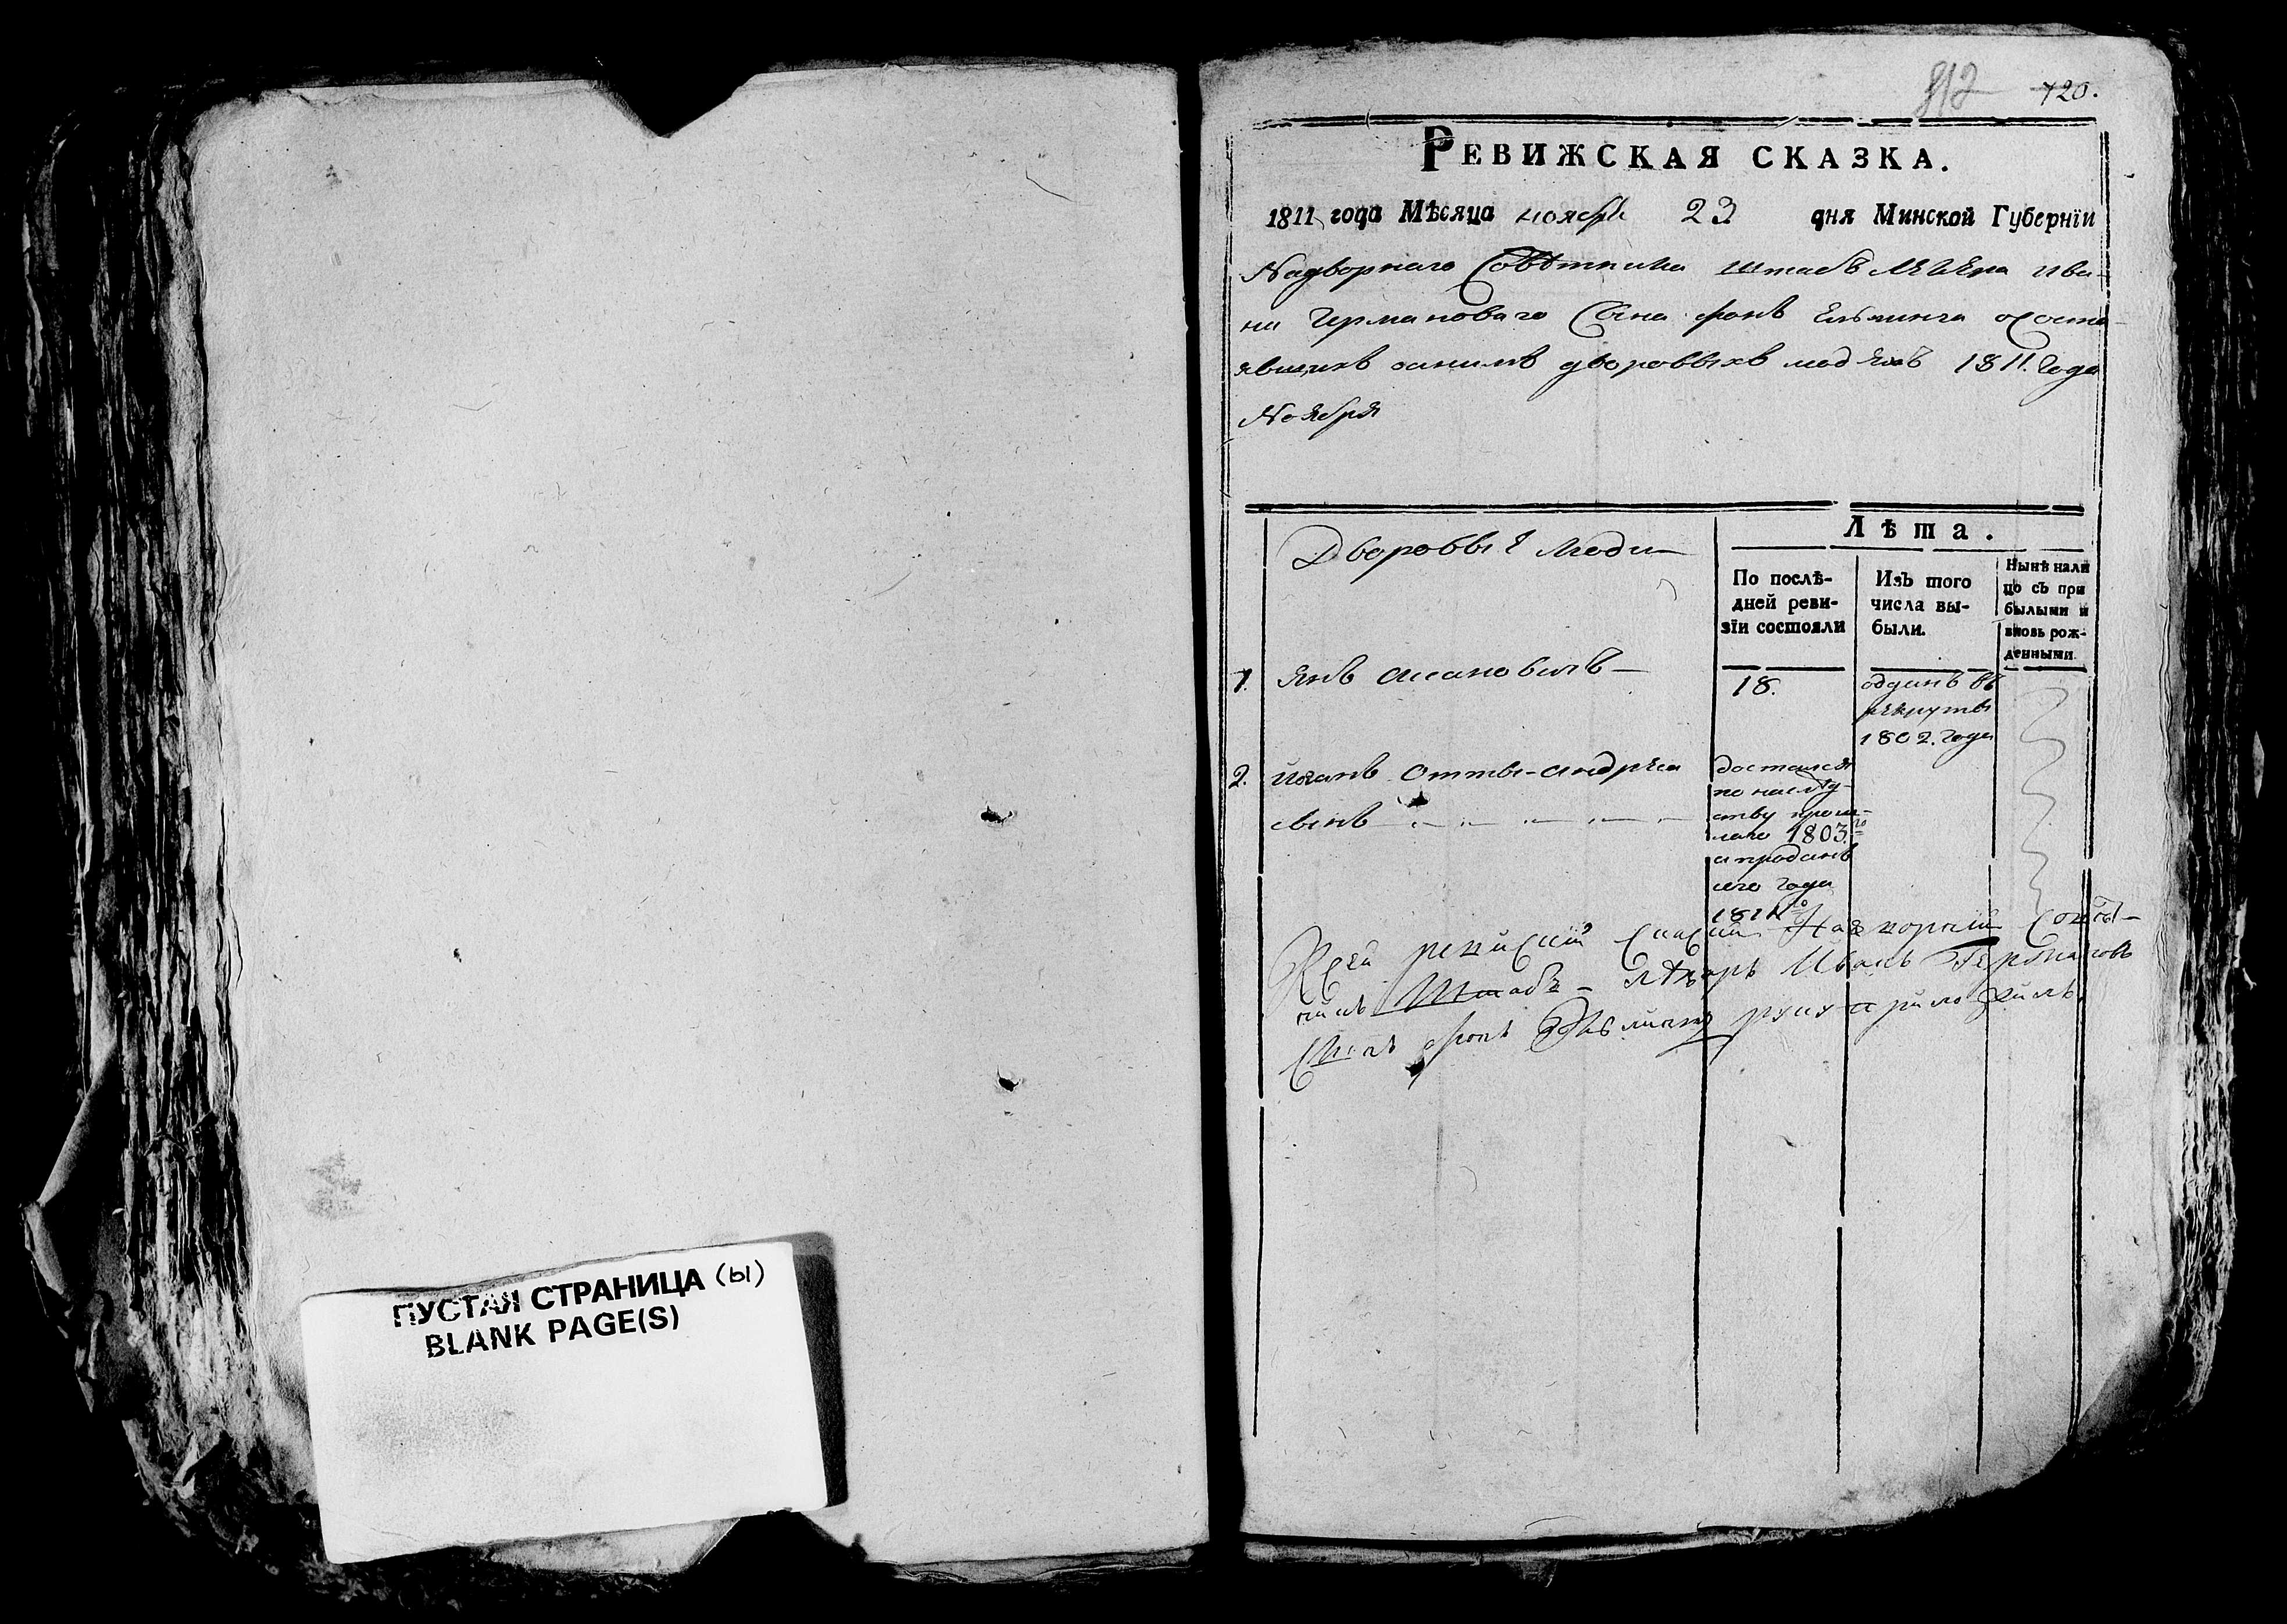 ПУСТАЯ СТРАНИЦА (ы)
BLANK PAGE(S)
812 720.
РЕВИЖСКАЯ СКАЗКА.
1811 года Мѣсяца ноября 23 дня Минской Губернїи
Надворнаго Совѣтника штабъ лекера ива-
на Германоваго Сына фонъ Ельлинга ососто-
явшихъ занимъ дворовыхъ людехъ 1811. Года
Ноября
Дворовые люди
Лѣта.
По послѣ-
дней реви-
зїи состояли
Изъ того
числа вы-
были.
Нынѣ нали
цо съ при
былыми и
вновь рож-
денными.
1. янъ 18. отданъ въ
рекруты
1802. года
2. Иоганъ Отты-андреса
сынъ
достался
по наслѣд-
ству прош-
лаго 1803.го
а проданъ
сего года
1811го
Ксей ревиской скаски Надворный Совѣт-
никъ Штабъ-лѣкарь Иванъ Германовъ
Сынъ фонъ руку приложилъ